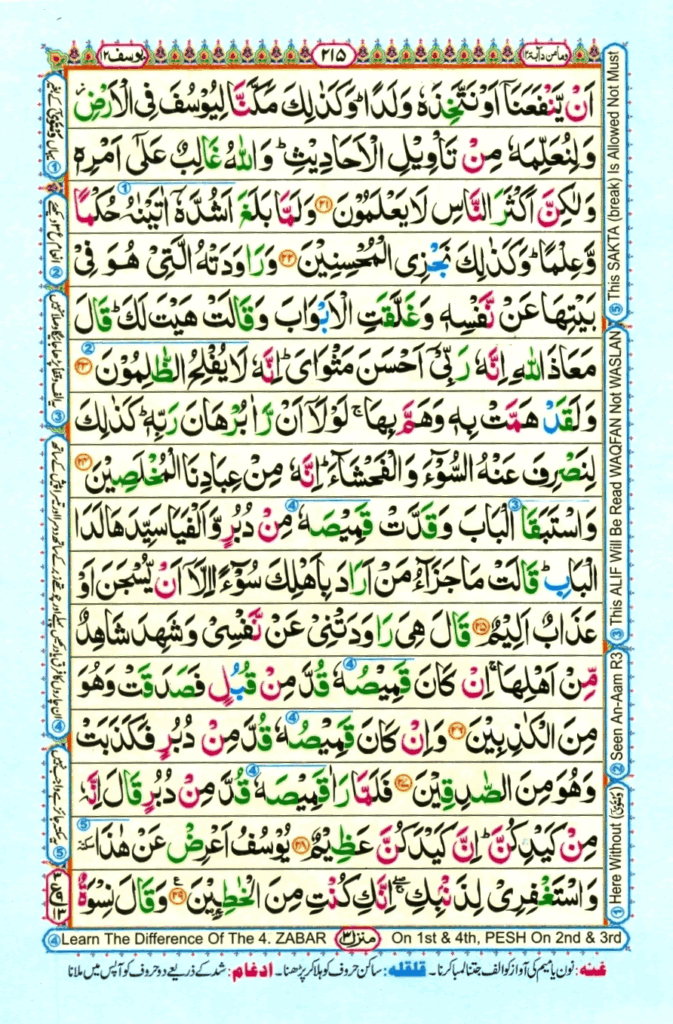 یوسف ۱۲
۲۱۵
وما من دآبة ۱۲
اَنْ يَّنْفَعَنَاۤ اَوْ نَتَّخِذَهٗ وَلَدًا ؕ وَكَذٰلِكَ مَكَّنَّا لِيُوْسُفَ فِى الْاَرْضِ
وَلِنُعَلِّمَهٗ مِنْ تَاْوِيْلِ الْاَحَادِيْثِ ؕ وَاللّٰهُ غَالِبٌ عَلٰٓى اَمْرِهٖ
وَلٰكِنَّ اَكْثَرَ النَّاسِ لَا يَعْلَمُوْنَ ﴿۲۱﴾ وَلَمَّا بَلَغَ اَشُدَّهٗۤ اٰتَيْنٰهُ حُكْمًا
وَّعِلْمًا ؕ وَكَذٰلِكَ نَجْزِى الْمُحْسِنِيْنَ ﴿۲۲﴾ وَرَاوَدَتْهُ الَّتِىْ هُوَ فِىْ
بَيْتِهَا عَنْ نَّفْسِهٖ وَغَلَّقَتِ الْاَبْوَابَ وَقَالَتْ هَيْتَ لَكَ ؕ قَالَ
مَعَاذَ اللّٰهِ اِنَّهٗ رَبِّىْۤ اَحْسَنَ مَثْوَاىَ ؕ اِنَّهٗ لَا يُفْلِحُ الظّٰلِمُوْنَ ﴿۲۳﴾
وَلَقَدْ هَمَّتْ بِهٖ وَهَمَّ بِهَا ۚ لَوْلَاۤ اَنْ رَّاٰ بُرْهَانَ رَبِّهٖ ؕ كَذٰلِكَ
لِنَصْرِفَ عَنْهُ السُّوْٓءَ وَالْفَحْشَآءَ ؕ اِنَّهٗ مِنْ عِبَادِنَا الْمُخْلَصِيْنَ ﴿۲۴﴾
وَاسْتَبَقَا الْبَابَ وَقَدَّتْ قَمِيْصَهٗ مِنْ دُبُرٍ وَّاَلْفَيَا سَيِّدَهَا لَدَا
الْبَابِ ؕ قَالَتْ مَا جَزَآءُ مَنْ اَرَادَ بِاَهْلِكَ سُوْٓءًا اِلَّاۤ اَنْ يُّسْجَنَ اَوْ
عَذَابٌ اَلِيْمٌ ﴿۲۵﴾ قَالَ هِىَ رَاوَدَتْنِىْ عَنْ نَّفْسِىْ وَشَهِدَ شَاهِدٌ
مِّنْ اَهْلِهَا ۚ اِنْ كَانَ قَمِيْصُهٗ قُدَّ مِنْ قُبُلٍ فَصَدَقَتْ وَهُوَ
مِنَ الْكٰذِبِيْنَ ﴿۲۶﴾ وَاِنْ كَانَ قَمِيْصُهٗ قُدَّ مِنْ دُبُرٍ فَكَذَبَتْ
وَهُوَ مِنَ الصّٰدِقِيْنَ ﴿۲۷﴾ فَلَمَّا رَاٰ قَمِيْصَهٗ قُدَّ مِنْ دُبُرٍ قَالَ اِنَّهٗ
مِنْ كَيْدِكُنَّ ؕ اِنَّ كَيْدَكُنَّ عَظِيْمٌ ﴿۲۸﴾ يُوْسُفُ اَعْرِضْ عَنْ هٰذَا سكتة
وَاسْتَغْفِرِىْ لِذَنْۢبِكِ ۖۚ اِنَّكِ كُنْتِ مِنَ الْخٰطِـِٕيْنَ ﴿۲۹﴾ وَقَالَ نِسْوَةٌ
④ Learn The Difference Of The 4. ZABAR منزل ۳ On 1st & 4th, PESH On 2nd & 3rd
غنه: نون یا میم کی آواز کو الف جتنا لمبا کرنا۔ قلقله: ساکن حروف کو ہلا کر پڑھنا۔ ادغام: شد کے ذریعے دو حروف کو آپس میں ملانا
⑤ This SAKTA (break) Is Allowed Not Must
③ This ALIF Will Be Read WAQFAN Not WASLAN
② Seen An-Aam R3
① Here Without